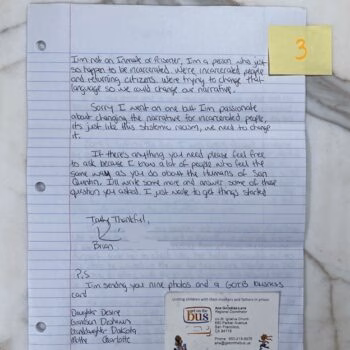 3
I'm not an Inmate or Prisoner, I'm a person who just
so happen to be incarcerated. We're, incarcerated people
and returning citizens. We're trying to change that
language so we could change our narrative.
Sorry I went on one but I'm passionate
about changing the narrative for incarcerated people,
it's just like this systemic racism, we need to change
it.
If there's anything you need please feel free
to ask because I know a lot of people who feel the
same way as you do about the Humans of San
Quentin. I'll write some more and answer some of those
question you asked. I just wante to get things started
Truly Thankful,
Brian
P.S
I'm sending you nine photos and a GOTB business
card
Daughter Desire
Grandson
Granddaughter Dakota
Mother Charlotte
uniting children with their mothers and fathers in prison
get on the
bus
Regional Coordinator
c/o St. Ignatius Church
650 Parker Avenue
San Francisco,
CA 94118